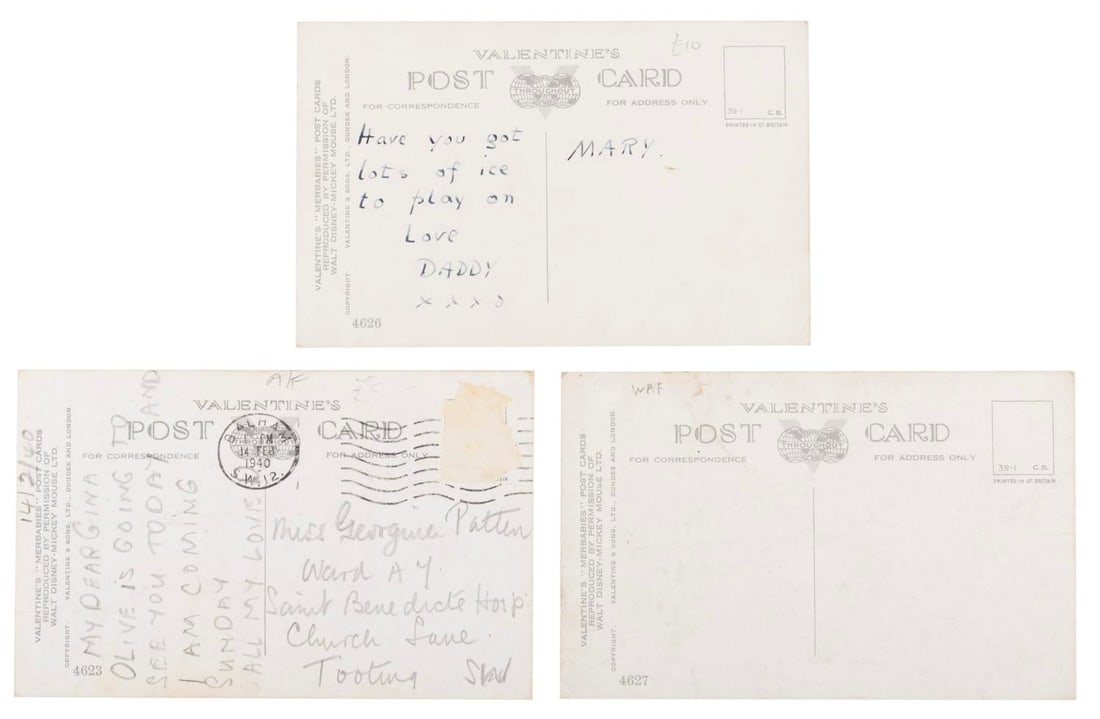 £10
VALENTINE'S
POST CARD
THROUGHOUT
FOR CORRESPONDENCE
FOR ADDRESS ONLY
39-1 C.B.
PRINTED IN GT. BRITAIN
VALENTINE'S "MERBABIES" POST CARDS
REPRODUCED BY PERMISSION OF
WALT DISNEY-MICKEY MOUSE LTD.
COPYRIGHT. VALENTINE & SONS, LTD., DUNDEE AND LONDON.
Have you got
lots of ice
to play on
Love
DADDY
x x x o
MARY.
4626
A/F
VALENTINE'S
POST CARD
FOR CORRESPONDENCE
FOR ADDRESS ONLY
BALHAM
PM
14 FEB
1940
S.W.12.
14/2/40
VALENTINE'S "MERBABIES" POST CARDS
REPRODUCED BY PERMISSION OF
WALT DISNEY-MICKEY MOUSE LTD.
COPYRIGHT. VALENTINE & SONS, LTD., DUNDEE AND LONDON.
MY DEAR GINA
OLIVE IS GOING TO
SEE YOU TODAY AND
I AM COMING
SUNDAY
ALL MY LOVE
Miss Georgina Patten
Ward A
Saint Benedicts Hosp
Church Lane.
Tooting
4623
WAF
VALENTINE'S
POST CARD
THROUGHOUT
FOR CORRESPONDENCE
FOR ADDRESS ONLY
39-1 C.B.
PRINTED IN GT. BRITAIN
VALENTINE'S "MERBABIES" POST CARDS
REPRODUCED BY PERMISSION OF
WALT DISNEY-MICKEY MOUSE LTD.
COPYRIGHT. VALENTINE & SONS, LTD., DUNDEE AND LONDON.
4627